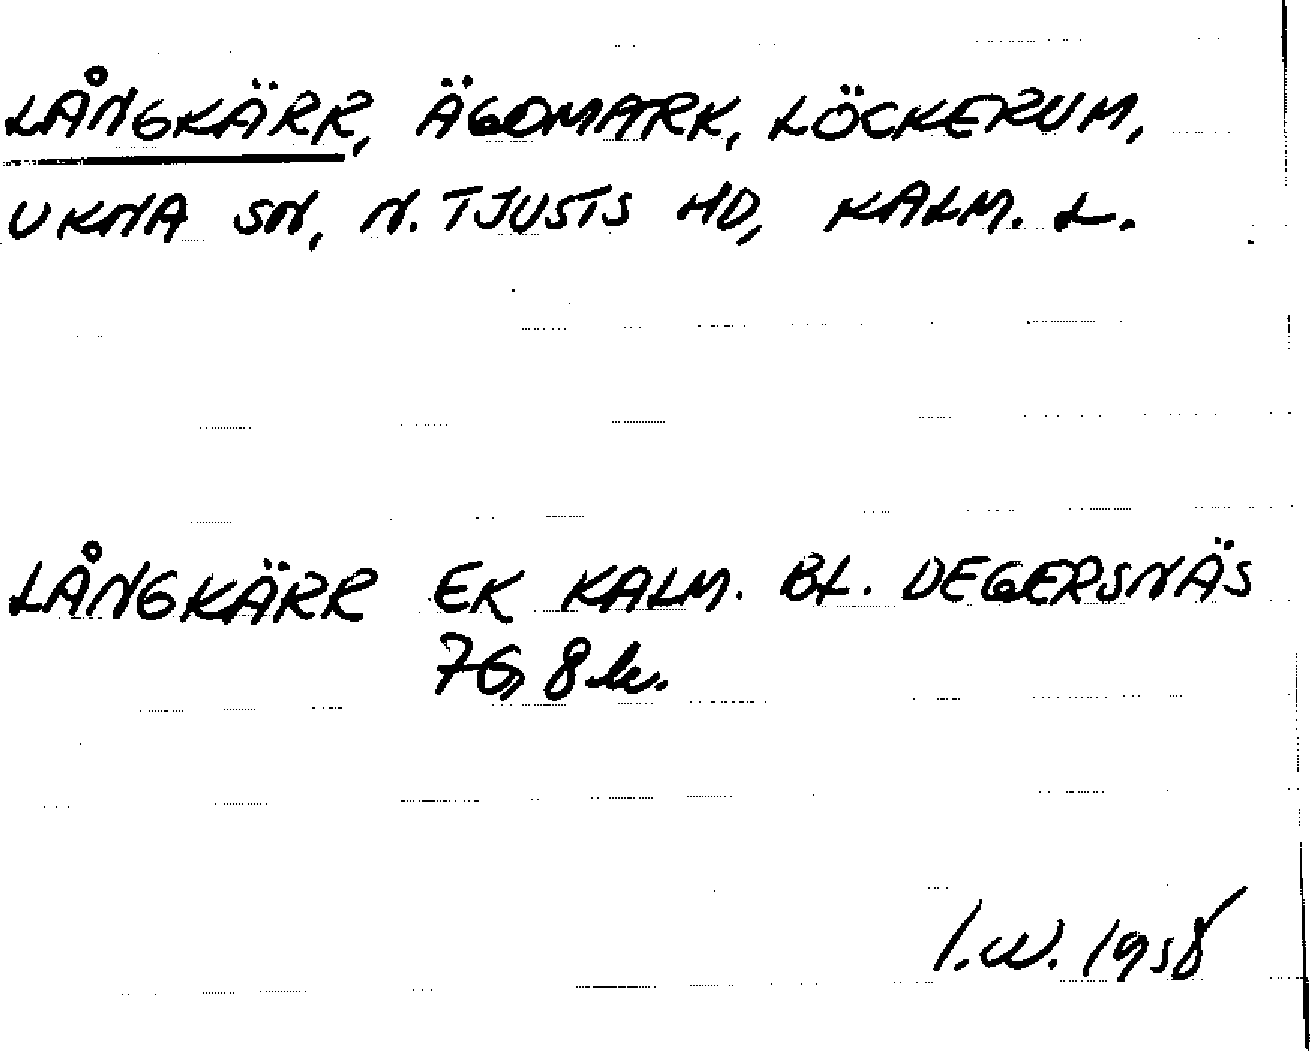 LÅNGKÄRR, ÄGOMARK, LÖCKERUM,
UKNA SN, N. TJUSTS HD, KALM. L.
LÅNGKÄRR EK KALM. BL. DEGERSNÄS
76, 8 k.
I.W. 1958